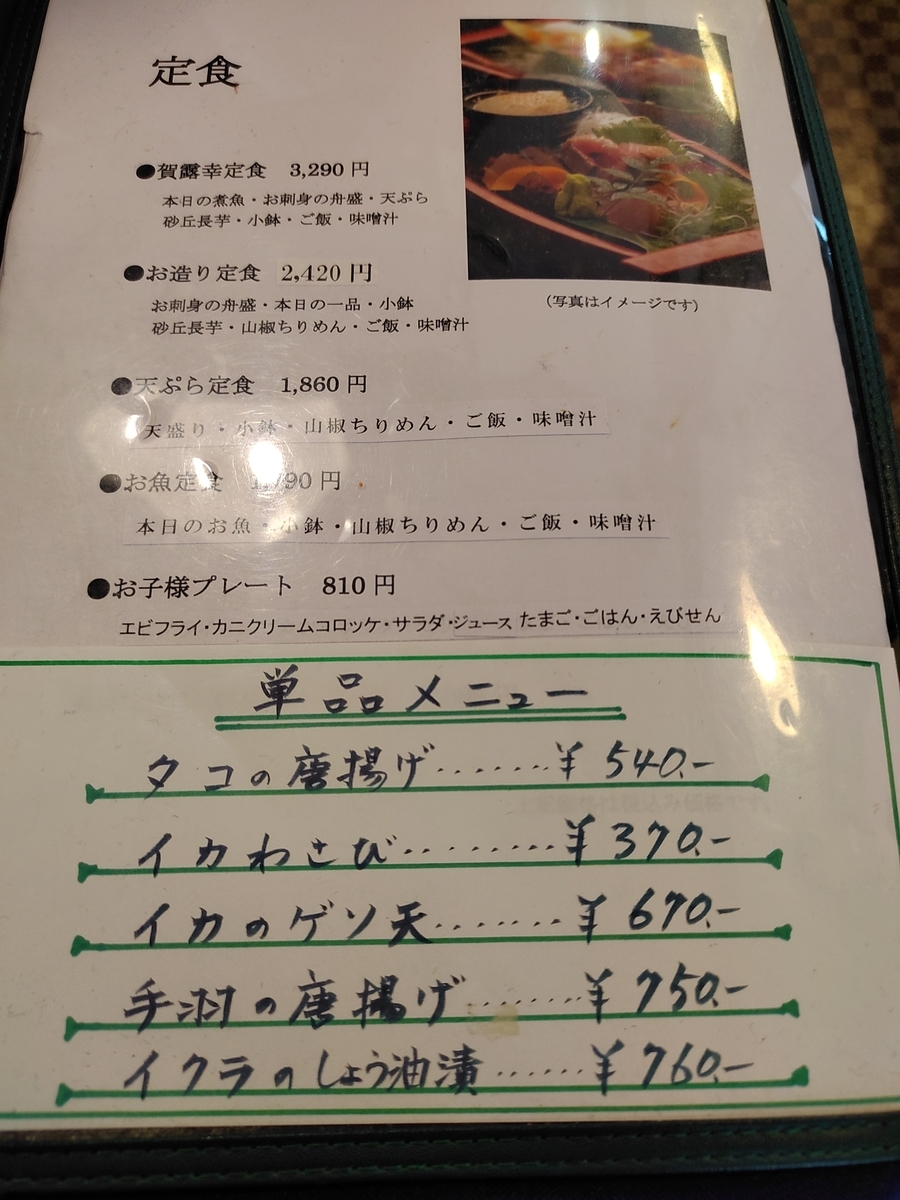 定食
●賀露幸定食 3,290 円
本日の煮魚・お刺身の舟盛・天ぷら
砂丘長芋・小鉢・ご飯・味噌汁
●お造り定食 2,420 円
お刺身の舟盛・本日の一品・小鉢
砂丘長芋・山椒ちりめん・ご飯・味噌汁
(写真はイメージです)
●天ぷら定食 1,860 円
天盛り・小鉢・山椒ちりめん・ご飯・味噌汁
●お魚定食 円
本日のお魚・小鉢・山椒ちりめん・ご飯・味噌汁
●お子様プレート 810 円
エビフライ・カニクリームコロッケ・サラダ・ジュース たまご・ごはん・えびせん
単品メニュー
タコの唐揚げ・・・・・・・¥540.-
イカわさび・・・・・・・・¥370.-
イカのゲソ天・・・・・・・¥670.-
手羽の唐揚げ・・・・・・・¥750.-
イクラのしょう油漬・・・・・・¥760.-